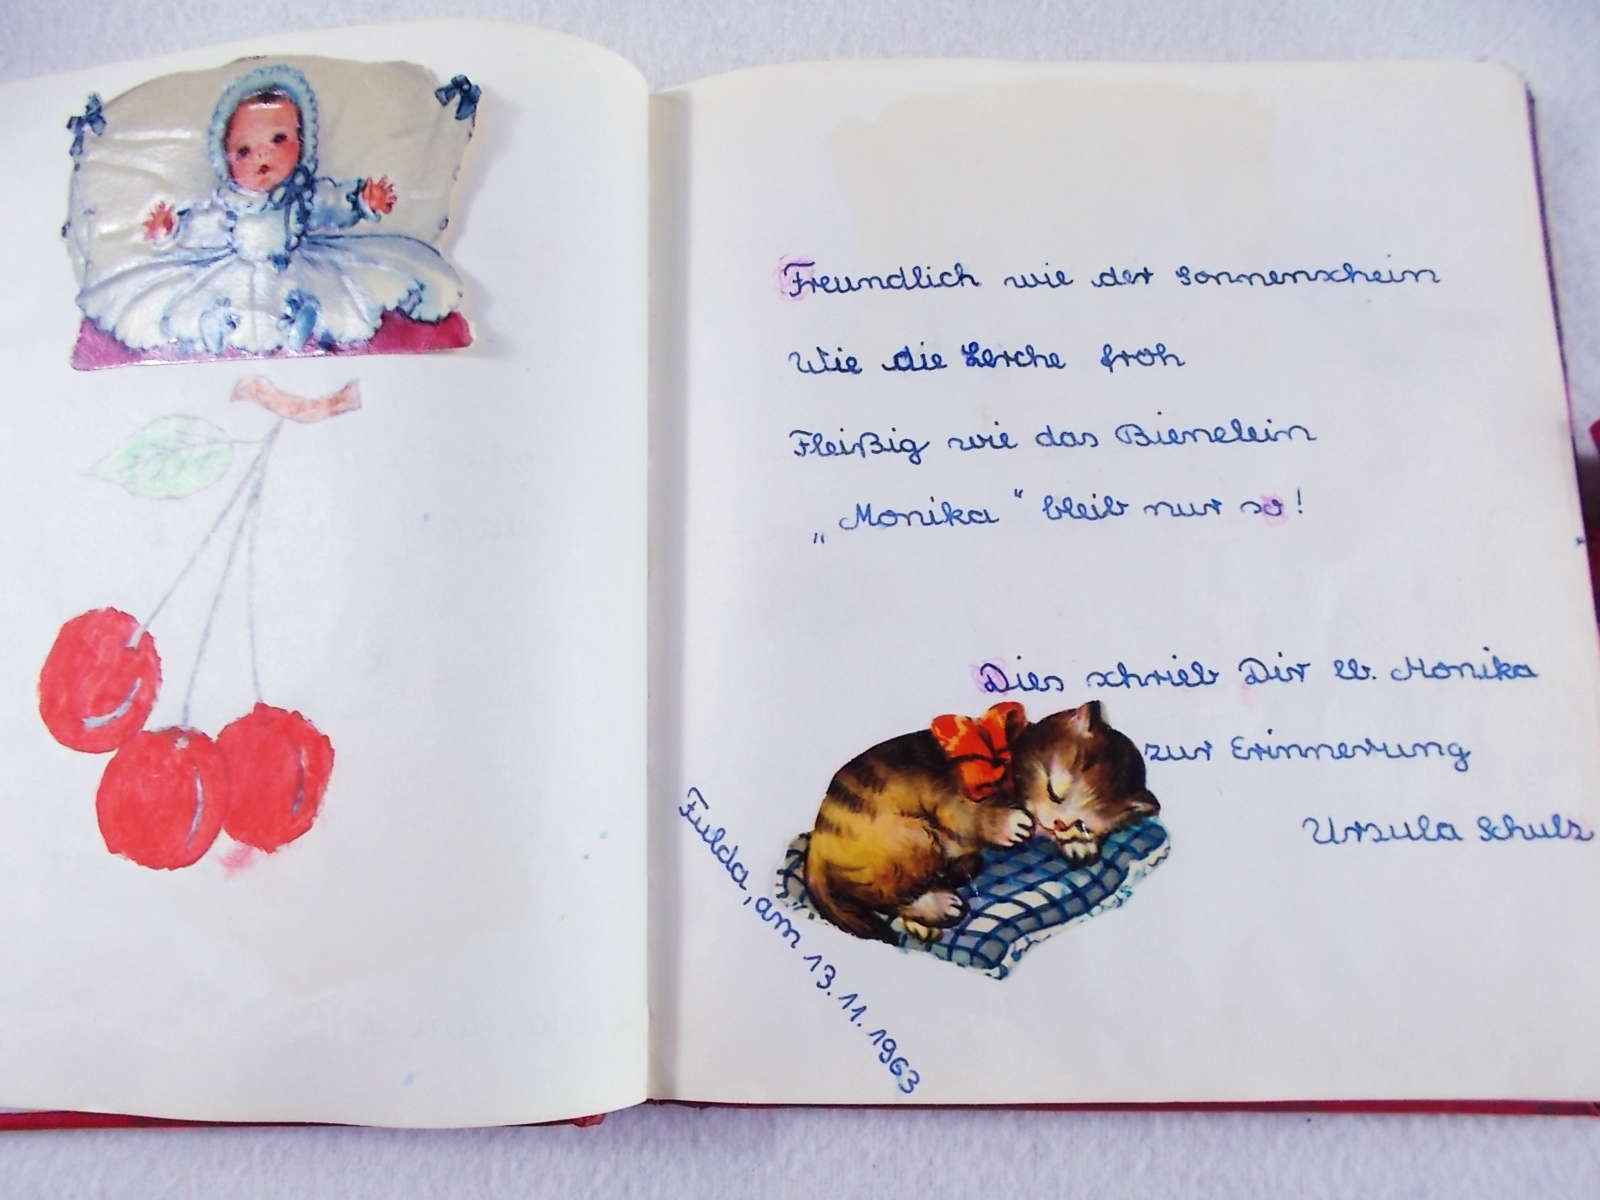 Freundlich wie der Sonnenschein
Wie die Lerche froh
Fleißig wie das Bienelein
„Monika“ bleib nur so!
Dies schrieb Dir lb. Monika
zur Erinnerung
Ursula Schulz
Fulda, am 13.11.1963